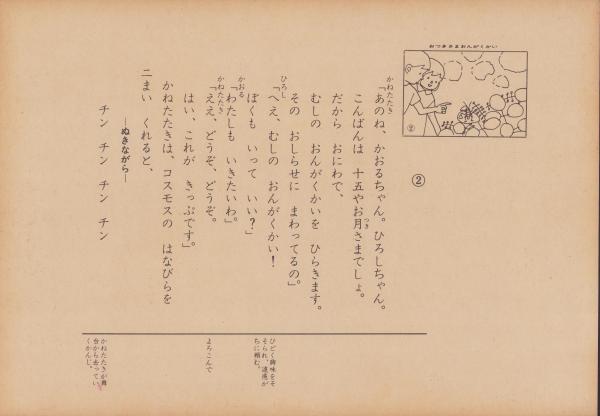 おつきさまおんがくかい
②
②
かねたたき
「あのね、かおるちゃん。ひろしちゃん。
こんばんは 十五やお月さまでしょ。
つき
だから おにわで、
むしの おんがくかいを ひらきます。
その おしらせに まわってるの」。
ひろし
「へえ、むしの おんがくかい!
ぼくも いって いい?」
かおる
「わたしも いきたいわ」。
かねたたき
「ええ、どうぞ、どうぞ。
はい、これが きっぷです」。
かねたたきは、コスモスの はなびらを
二まい くれると、
―ぬきながら―
チン チン チン チン
ひどく興味をそ
そられ、遠慮が
ちに頼む。
よろこんで
かねたたきが舞
台から去ってい
くかんじ。